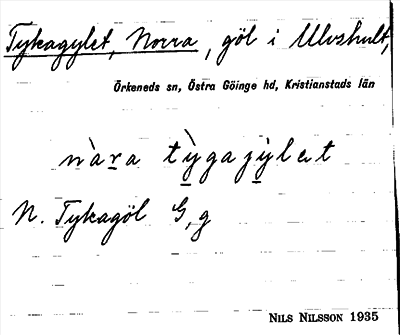 Tykagylet, Norra, göl i Ulvshult,
Örkeneds sn, Östra Göinge hd, Kristianstads län
nàra tỳgajỳlet
N. Tykagöl G, g
NILS NILSSON 1935